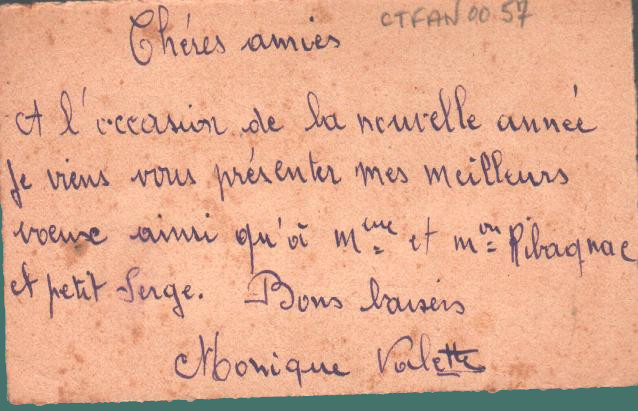 CTFAN 00 57
Chéres amies
A l'occasion de la nouvelle année
je viens vous présenter mes meilleurs
voeux ainsi qu'à Mme et Mon Ribagnac
et petit Serge. Bons baisers
Monique Valette